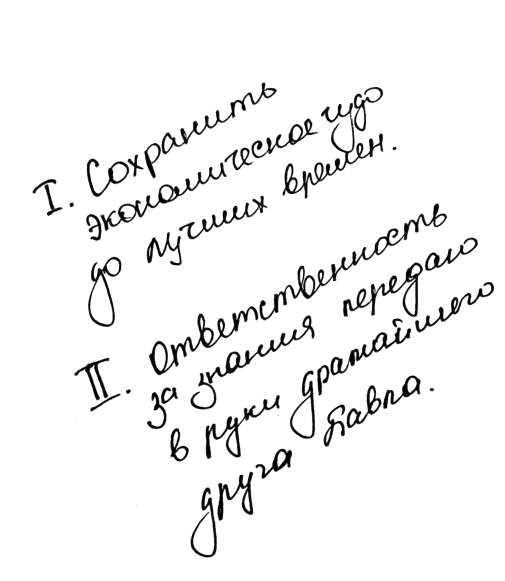 I. Сохранить
экономическое чудо
до лучших времен.
II. Ответственность
за знания передаю
в руки драмайшего
друга Павла.